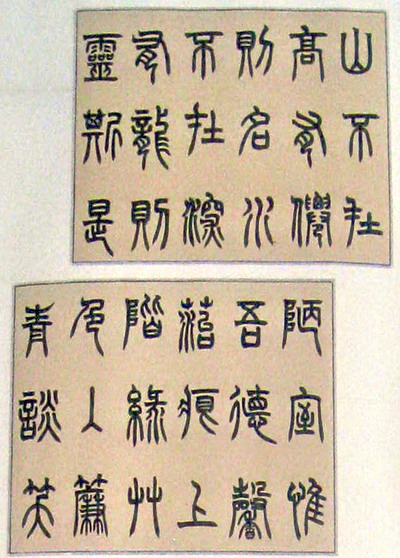 山不在
高有僊
則名水
不在深
有龍則
靈斯是
陋室惟
吾德馨
菭痕上
階綠艸
色入簾
青談笑